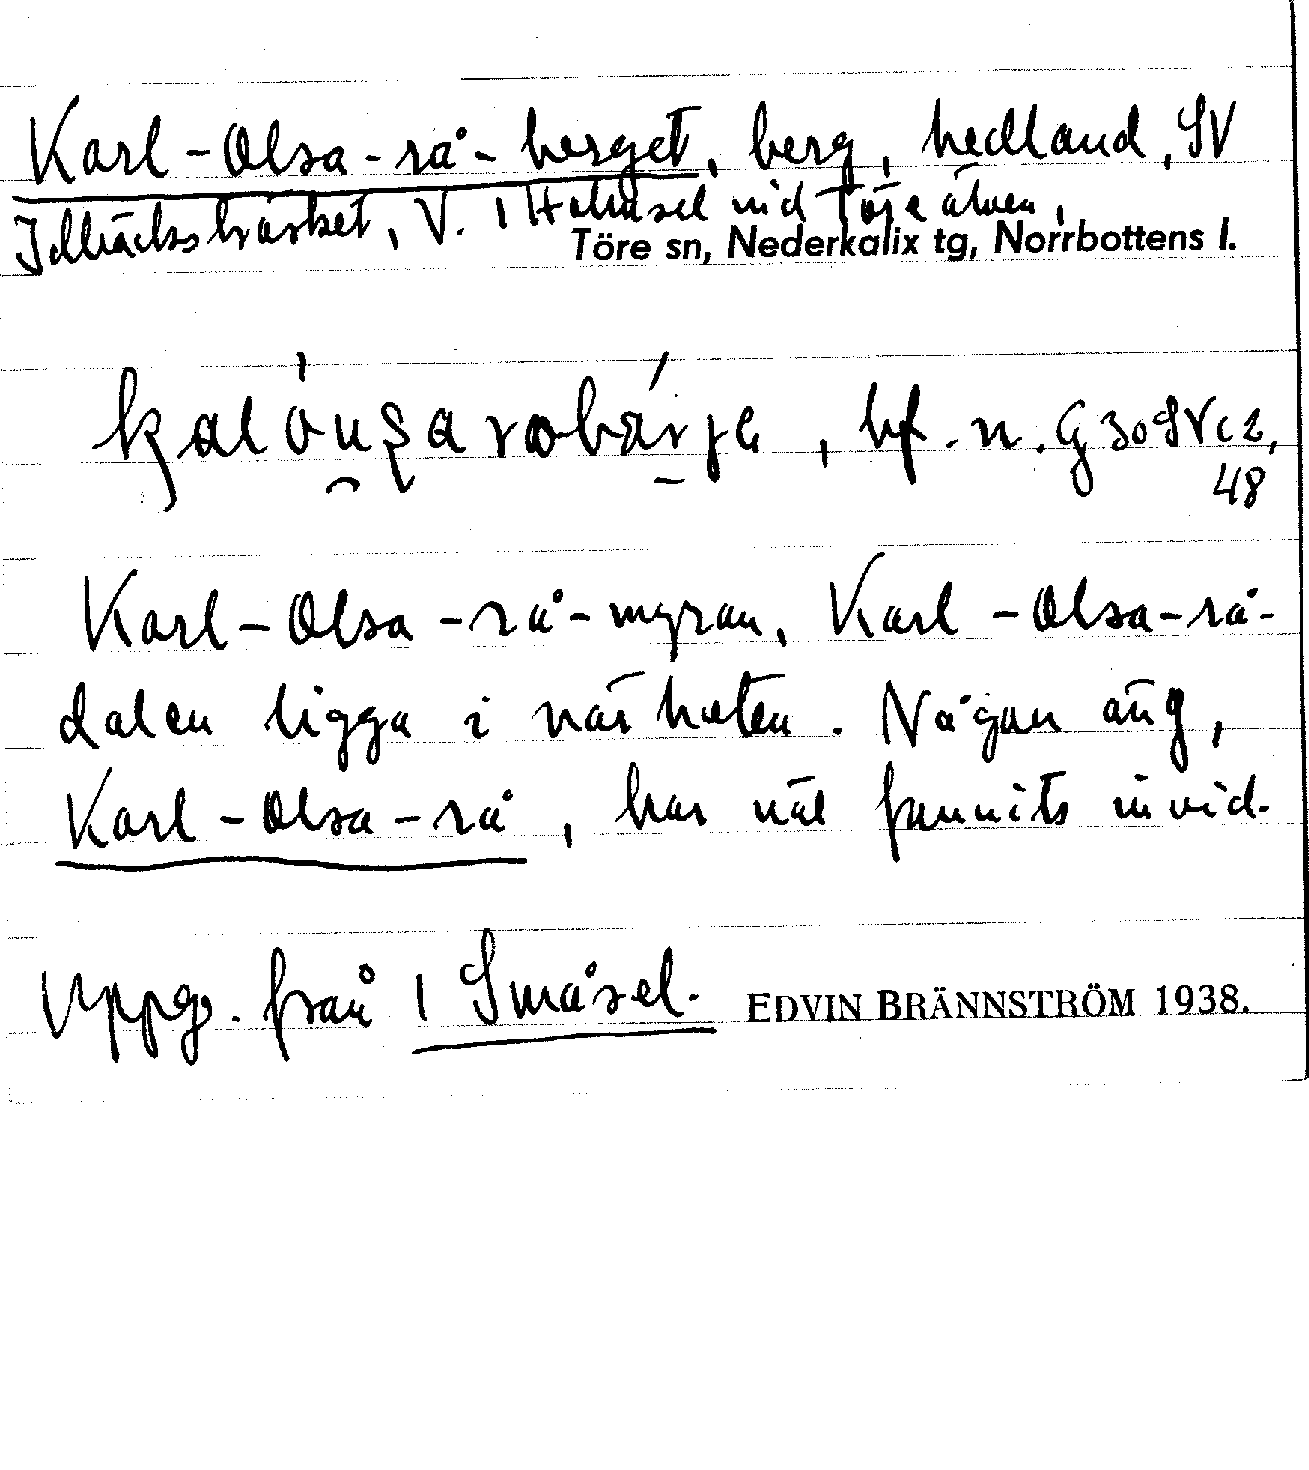 Karl-Olsa-rå-berget, berg, hedland, SV
träsket, V. 1 vid Töre älven,
Töre sn, Nederkalix tg, Norrbottens l.
, bf. n. G 30 SV c 2,
48
Karl-Olsa-rå-myran, Karl-Olsa-rå-
dalen ligga i närheten. Någon äng,
Karl-Olsa-rå, har väl funnits invid.
Uppg. från 1 Småsel. EDVIN BRÄNNSTRÖM 1938.